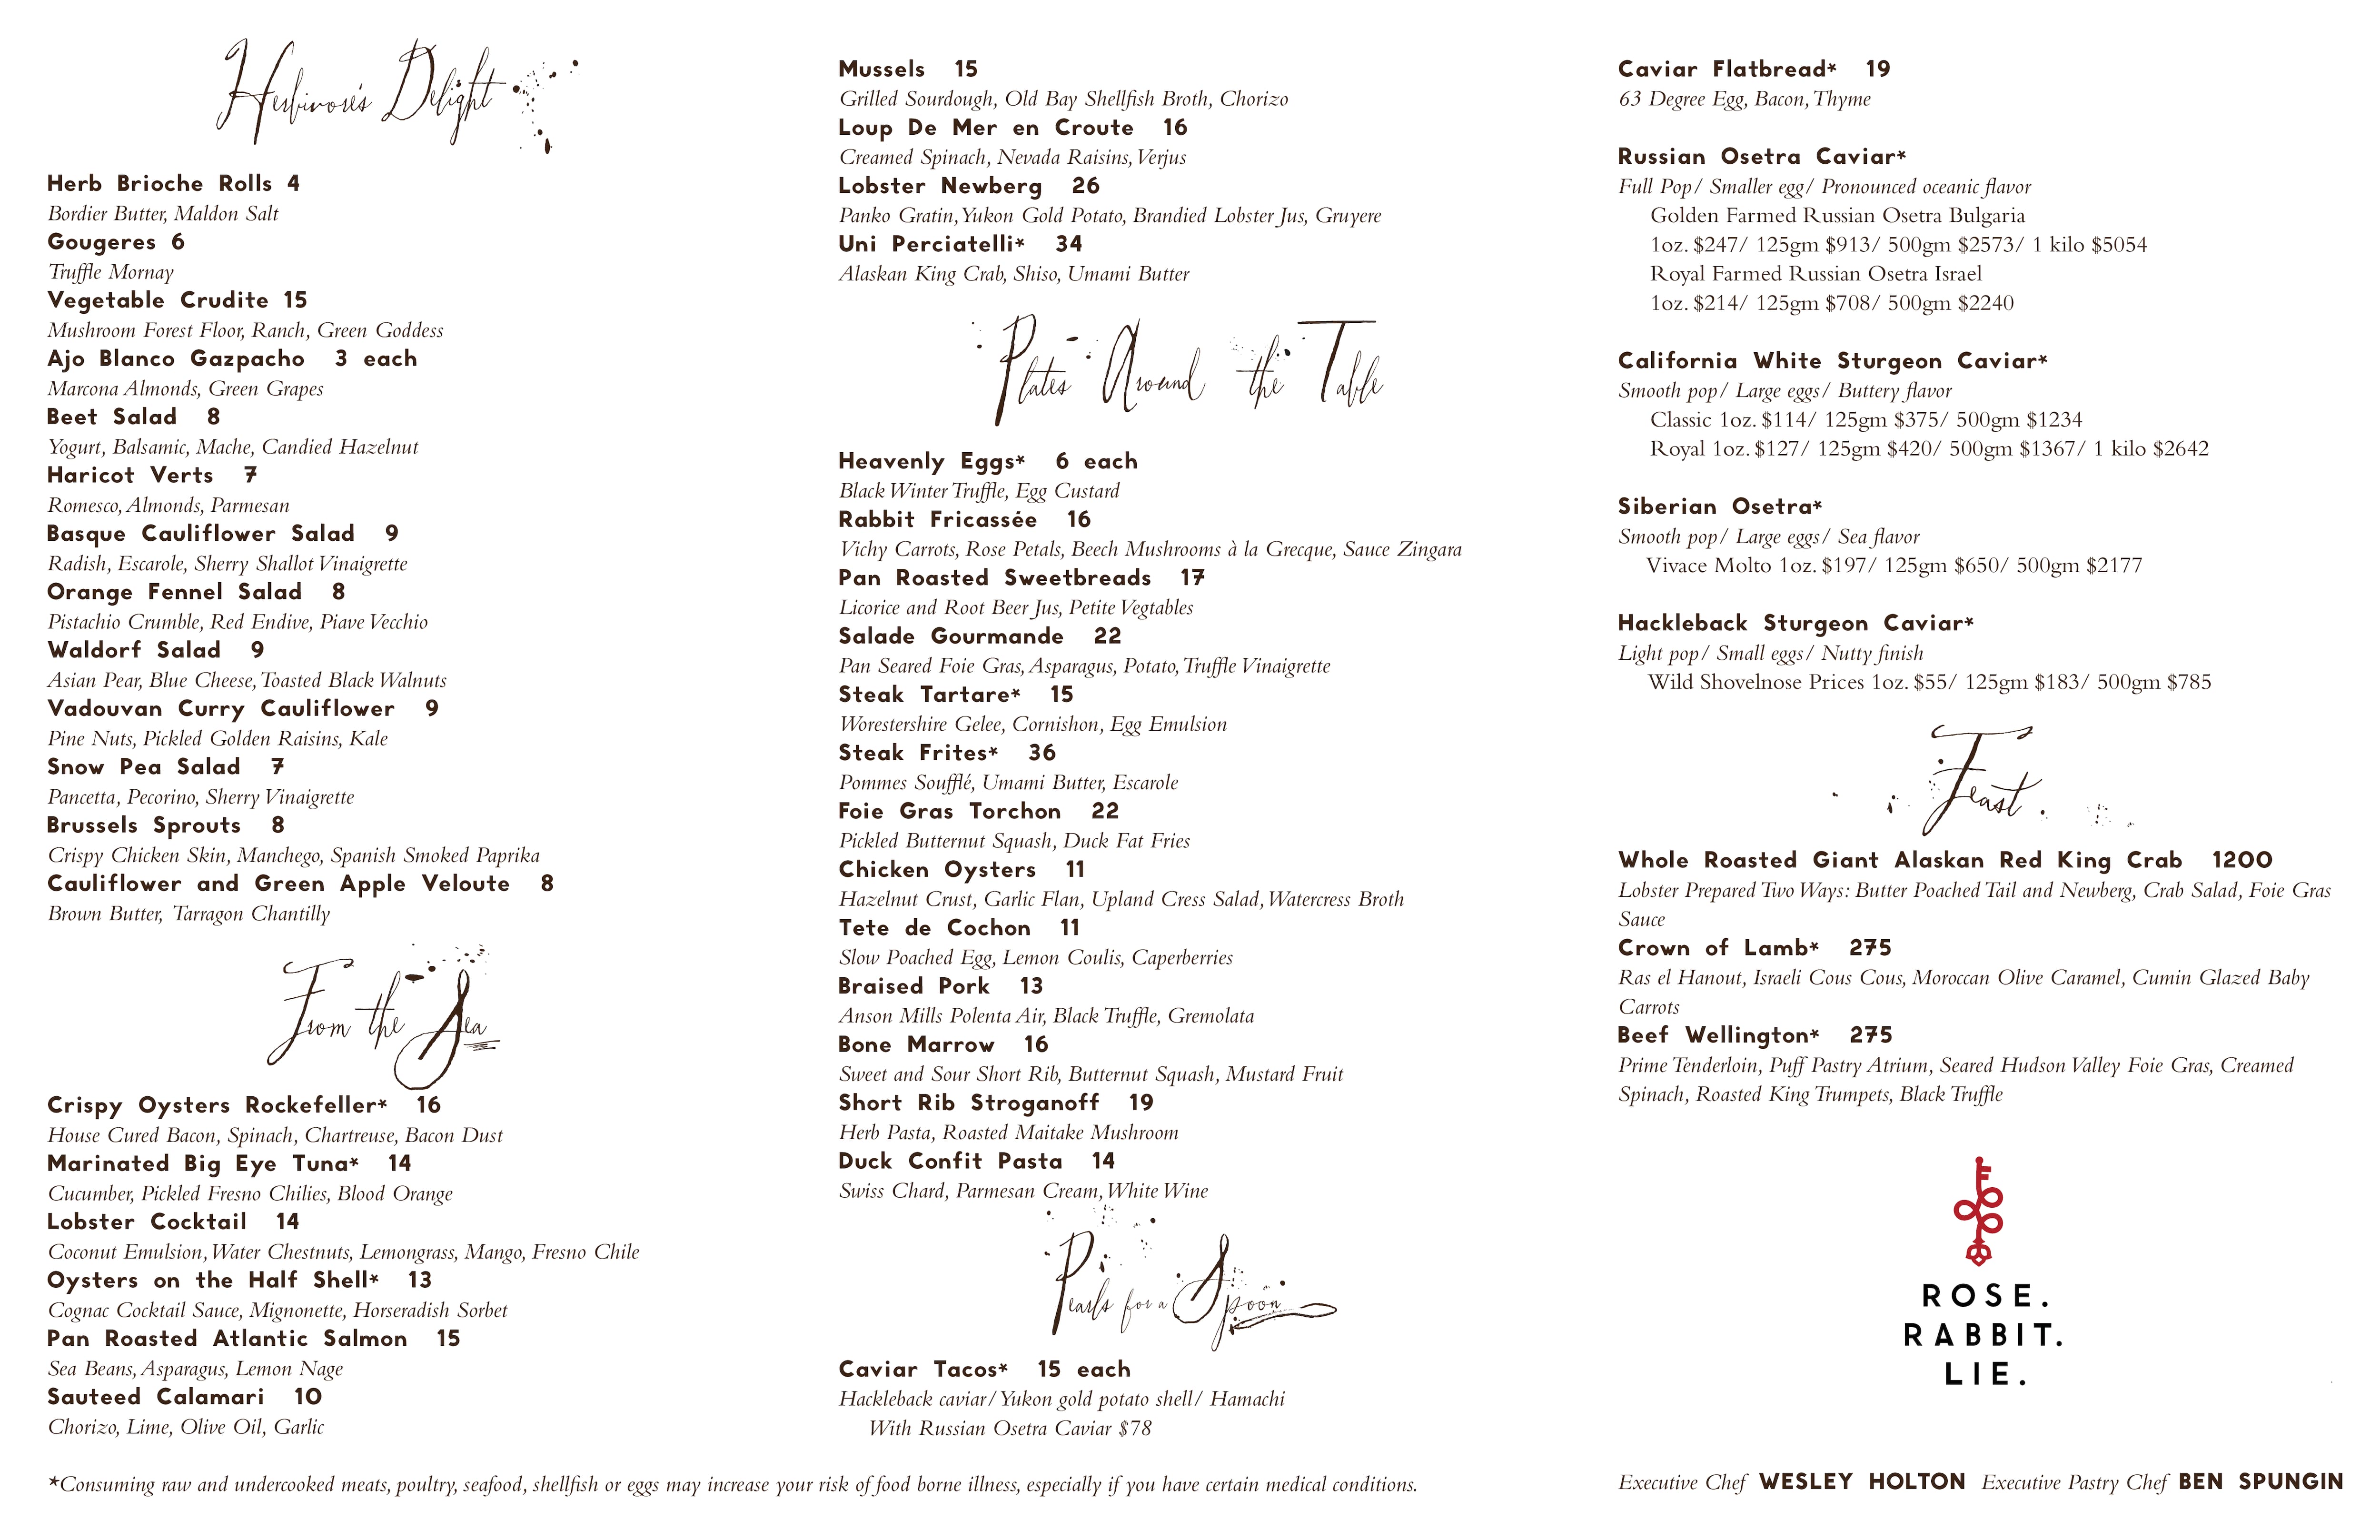 Herbivore's Delight
Herb Brioche Rolls 4
Bordier Butter, Maldon Salt
Gougeres 6
Truffle Mornay
Vegetable Crudite 15
Mushroom Forest Floor, Ranch, Green Goddess
Ajo Blanco Gazpacho 3 each
Marcona Almonds, Green Grapes
Beet Salad 8
Yogurt, Balsamic, Mache, Candied Hazelnut
Haricot Verts 7
Romesco, Almonds, Parmesan
Basque Cauliflower Salad 9
Radish, Escarole, Sherry Shallot Vinaigrette
Orange Fennel Salad 8
Pistachio Crumble, Red Endive, Piave Vecchio
Waldorf Salad 9
Asian Pear, Blue Cheese, Toasted Black Walnuts
Vadouvan Curry Cauliflower 9
Pine Nuts, Pickled Golden Raisins, Kale
Snow Pea Salad 7
Pancetta, Pecorino, Sherry Vinaigrette
Brussels Sprouts 8
Crispy Chicken Skin, Manchego, Spanish Smoked Paprika
Cauliflower and Green Apple Veloute 8
Brown Butter, Tarragon Chantilly
From the Sea
Crispy Oysters Rockefeller* 16
House Cured Bacon, Spinach, Chartreuse, Bacon Dust
Marinated Big Eye Tuna* 14
Cucumber, Pickled Fresno Chilies, Blood Orange
Lobster Cocktail 14
Coconut Emulsion, Water Chestnuts, Lemongrass, Mango, Fresno Chile
Oysters on the Half Shell* 13
Cognac Cocktail Sauce, Mignonette, Horseradish Sorbet
Pan Roasted Atlantic Salmon 15
Sea Beans, Asparagus, Lemon Nage
Sauteed Calamari 10
Chorizo, Lime, Olive Oil, Garlic
Mussels 15
Grilled Sourdough, Old Bay Shellfish Broth, Chorizo
Loup De Mer en Croute 16
Creamed Spinach, Nevada Raisins, Verjus
Lobster Newberg 26
Panko Gratin, Yukon Gold Potato, Brandied Lobster Jus, Gruyere
Uni Perciatelli* 34
Alaskan King Crab, Shiso, Umami Butter
Plates Around the Table
Heavenly Eggs* 6 each
Black Winter Truffle, Egg Custard
Rabbit Fricassée 16
Vichy Carrots, Rose Petals, Beech Mushrooms à la Grecque, Sauce Zingara
Pan Roasted Sweetbreads 17
Licorice and Root Beer Jus, Petite Vegtables
Salade Gourmande 22
Pan Seared Foie Gras, Asparagus, Potato, Truffle Vinaigrette
Steak Tartare* 15
Worestershire Gelee, Cornishon, Egg Emulsion
Steak Frites* 36
Pommes Soufflé, Umami Butter, Escarole
Foie Gras Torchon 22
Pickled Butternut Squash, Duck Fat Fries
Chicken Oysters 11
Hazelnut Crust, Garlic Flan, Upland Cress Salad, Watercress Broth
Tete de Cochon 11
Slow Poached Egg, Lemon Coulis, Caperberries
Braised Pork 13
Anson Mills Polenta Air, Black Truffle, Gremolata
Bone Marrow 16
Sweet and Sour Short Rib, Butternut Squash, Mustard Fruit
Short Rib Stroganoff 19
Herb Pasta, Roasted Maitake Mushroom
Duck Confit Pasta 14
Swiss Chard, Parmesan Cream, White Wine
Pearls for a Spoon
Caviar Tacos* 15 each
Hackleback caviar/ Yukon gold potato shell/ Hamachi
With Russian Osetra Caviar $78
Caviar Flatbread* 19
63 Degree Egg, Bacon, Thyme
Russian Osetra Caviar*
Full Pop/ Smaller egg/ Pronounced oceanic flavor
Golden Farmed Russian Osetra Bulgaria
1oz. $247/ 125gm $913/ 500gm $2573/ 1 kilo $5054
Royal Farmed Russian Osetra Israel
1oz. $214/ 125gm $708/ 500gm $2240
California White Sturgeon Caviar*
Smooth pop/ Large eggs/ Buttery flavor
Classic 1oz. $114/ 125gm $375/ 500gm $1234
Royal 1oz. $127/ 125gm $420/ 500gm $1367/ 1 kilo $2642
Siberian Osetra*
Smooth pop/ Large eggs/ Sea flavor
Vivace Molto 1oz. $197/ 125gm $650/ 500gm $2177
Hackleback Sturgeon Caviar*
Light pop/ Small eggs/ Nutty finish
Wild Shovelnose Prices 1oz. $55/ 125gm $183/ 500gm $785
Feast
Whole Roasted Giant Alaskan Red King Crab 1200
Lobster Prepared Two Ways: Butter Poached Tail and Newberg, Crab Salad, Foie Gras
Sauce
Crown of Lamb* 275
Ras el Hanout, Israeli Cous Cous, Moroccan Olive Caramel, Cumin Glazed Baby
Carrots
Beef Wellington* 275
Prime Tenderloin, Puff Pastry Atrium, Seared Hudson Valley Foie Gras, Creamed
Spinach, Roasted King Trumpets, Black Truffle
ROSE.
RABBIT.
LIE.
*Consuming raw and undercooked meats, poultry, seafood, shellfish or eggs may increase your risk of food borne illness, especially if you have certain medical conditions.
Executive Chef WESLEY HOLTON Executive Pastry Chef BEN SPUNGIN